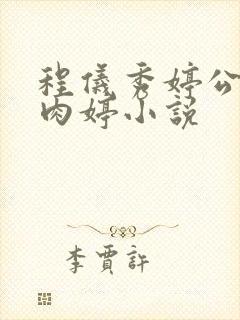 程儀秀婷公
肉婷小説
李賈許